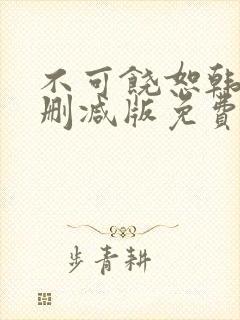 不可饶恕韩
删减版免费
步青耕